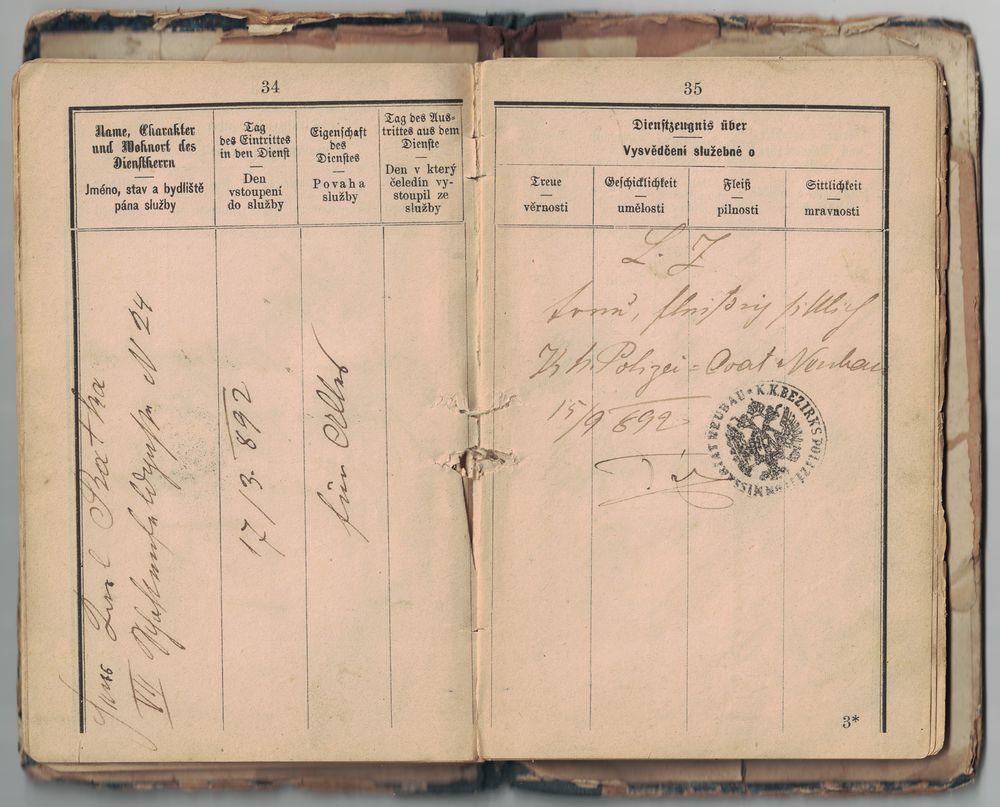 34
Name, Charakter
und Wohnort des
Dienstherrn
Jméno, stav a bydliště
pána služby
Tag
des Eintrittes
in den Dienst
Den
vstoupení
do služby
Eigenschaft
des
Dienstes
Povaha
služby
Tag des Aus-
trittes aus dem
Dienste
Den v který
čeledín vy-
stoupil ze
služby
VII
N 24
17/3. 892
für Alles
35
Dienstzeugnis über
Vysvědčení služebné o
Treue
věrnosti
Geschicklichkeit
umělosti
Fleiß
pilnosti
Sittlichkeit
mravnosti
L. Z
treu, fleißig, sittlich
K k Polizei = Neubau
15/9 892
K.K. BEZIRKS POLIZEI COMMISSARIAT NEUBAU
3*